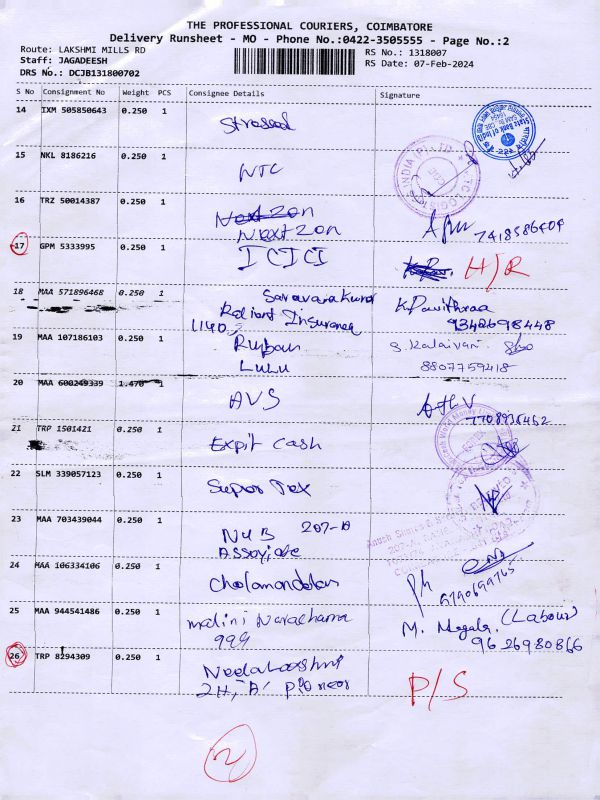 THE PROFESSIONAL COURIERS, COIMBATORE
Delivery Runsheet - MO - Phone No.:0422-3505555 - Page No.:2
Route: LAKSHMI MILLS RD
Staff: JAGADEESH
DRS No.: DCJB131800702
RS No.: 1318007
RS Date: 07-Feb-2024
S No Consignment No Weight PCS Consignee Details Signature
14 IXM 505850643 0.250 1
State Bank of India
15 NKL 8186216 0.250 1 NTC
16 TRZ 50014387 0.250 1 Next zon
Next zon
17 GPM 5333995 0.250 1 ICICI H/R
18 MAA 571896468 0.250 1 Saravana Kumar K Pavithraa
Reliant Insurance 9342698448
19 MAA 107186103 0.250 1 S. Kalaivani
LULU 8807759418
20 MAA 600249339 1.470 1 AVS
21 TRP 1501421 0.250 1 Expit Cash
22 SLM 339057123 0.250 1 Super Tex
23 MAA 703439044 0.250 1 NUB 207-10
24 MAA 106334106 0.250 1 Cholamandalam
25 MAA 944541486 0.250 1 malini M. Magala (Labour)
999 9626980866
26 TRP 8294309 0.250 1
2H, 'A' Pioneer P/S
2